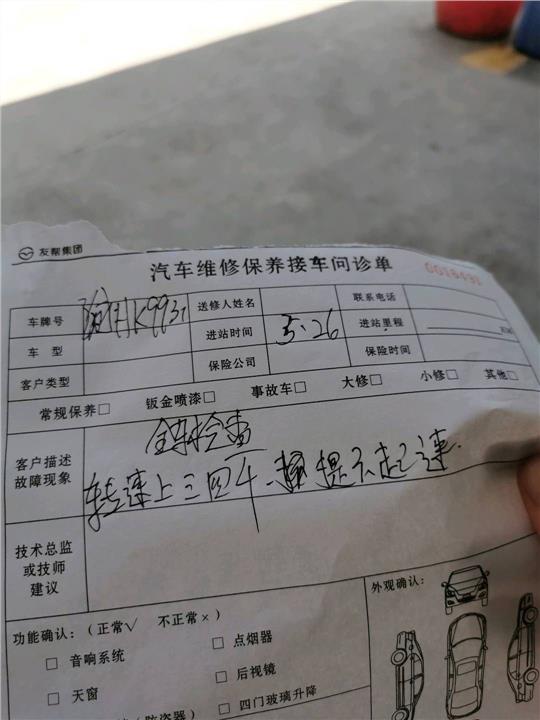 友帮集团
汽车维修保养接车问诊单
0018491
车牌号 送修人姓名 联系电话
车 型 进站时间 5.26 进站里程 KM
客户类型 保险公司 保险时间
常规保养□ 钣金喷漆□ 事故车□ 大修□ 小修□ 其他□
全车检查
客户描述
故障现象
转速上三四千、提不起速.
技术总监
或技师
建议
功能确认：（正常√ 不正常×） 外观确认：
□ 音响系统 □ 点烟器
□ 天窗 □ 后视镜
（防盗器） □ 四门玻璃升降